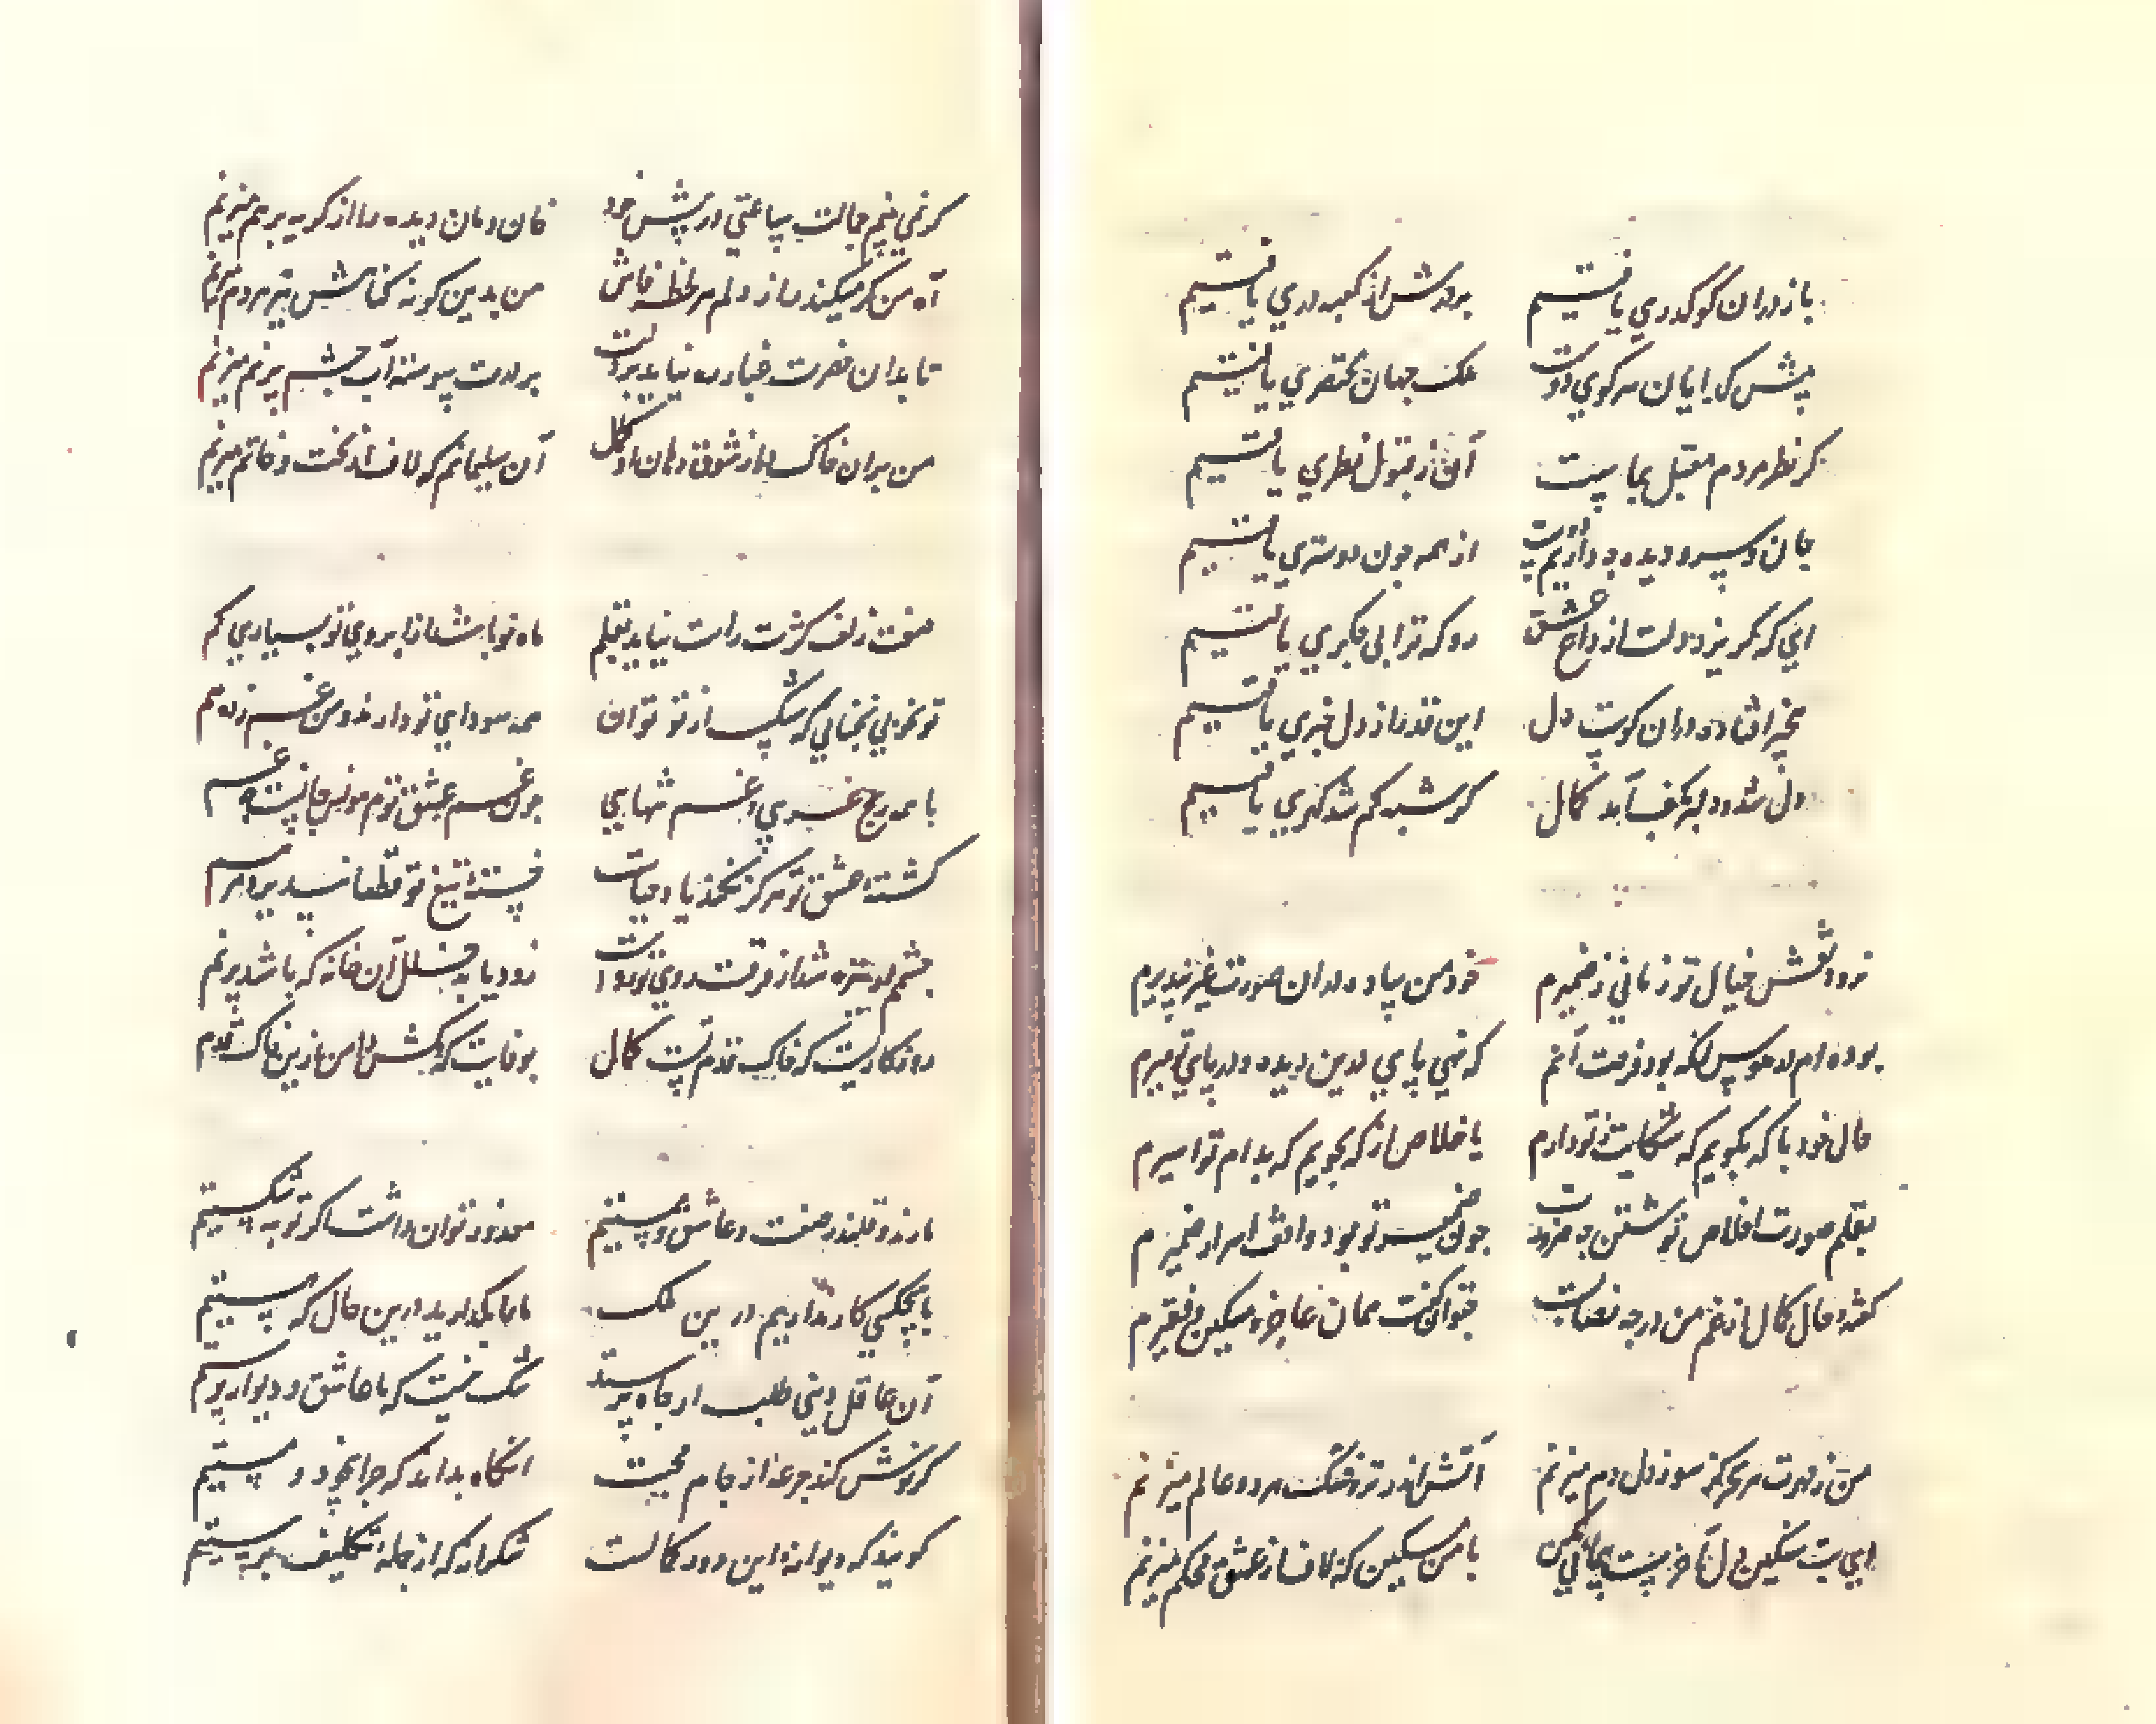 باز در آن کو گذری یافتیم
بر درش از کعبه دری یافتیم
پیش گدایان سر کوی دوست
ملک جهان مختصری یافتیم
گر نظر مردم مقبل بماست
آن ز قبول نظری یافتیم
جان و سر و دیده به
از همه چون دوستری یافتیم
ای که گریزد دلت از داغ عشق
رو که ترا بی جگری یافتیم
بیخبر افتاده در آن کوست دل
این قدر از دل خبری یافتیم
دل شد و دلبر بکف آمد کمال
گر شبه گم شد گهری یافتیم
نرود نقش خیال تو زمانی ز ضمیرم
خود من ساده در آن صورت غیر نپذیرم
بوده ام در هوس آنکه بود فرصت آنم
که نهی پای درین دیده و در پای تو میرم
حال خود با که بگویم که شکایت ز تو دارم
یا خلاص از که بجویم که بدام تو اسیرم
بقلم صورت اخلاص نوشتن چه ضرورت
چون ضمیر تو بود واقف اسرار ضمیرم
گفته حال کمال از غم من در چه نصابست
بتوان گفت همان عاجز و مسکین و فقیرم
من ز مهرت هر سحر که سوز دل دم میزنم
آتش اندر خشک هر دو عالم میزنم
ای بت سنگین دل آخر چیست
با من مسکین که لاف از عشق محکم میزنم
گر نمی بینم جمالت ساعتی در پیش خود
خان و مان دیده را از گریه بر هم میزنم
آه من گر میکند راز دلم هر لحظه فاش
من بدین گونه
تا بدان حضرت غبار ره نیاید بر درت
بر درت پیوسته آب چشم پر نم میزنم
من بر آن خاک در از شوق دهان او کمال
آن سلیمانم که لاف از تخت و خاتم میزنم
صفت زلف کژت راست نیاید بقلم
ماه نو باشد از ابروی تو بسیاری کم
تو بخوبی نه چنانی که شکیب از تو توان
همه سودای تو دارند و من غمزده هم
با همه رنج غریبی و غم تنهایی
چون غم عشق توام مونس جانست چه غم
کشته عشق تو هرگز نکند یاد حیات
خسته تیغ تو قطعا نپذیرد مرهم
چشم تر تیره شد از فرقت روی تو مرا
زود یابد خلل آن خانه که باشد پر نم
روزگاریست که خاک قدم تست کمال
بوفایت که مکش دامن ازین خاک قدم
ما رند و قلندر صفت و عاشق و مستیم
معذور توان داشت اگر توبه شکستیم
با هیچکسی کار نداریم درین ملک
ما را بگذارید درین حال که هستیم
آن عاقل دنیی طلب ار جاه پرستد
شک نیست که ما عاشق و دیوانه پرستیم
گر نوش کند جرعه از جام محبت
آنگاه بداند که چرا بیخود و مستیم
گویند که دیوانه این درد کمالست
شکرانه که از جمله تکلیف برستیم